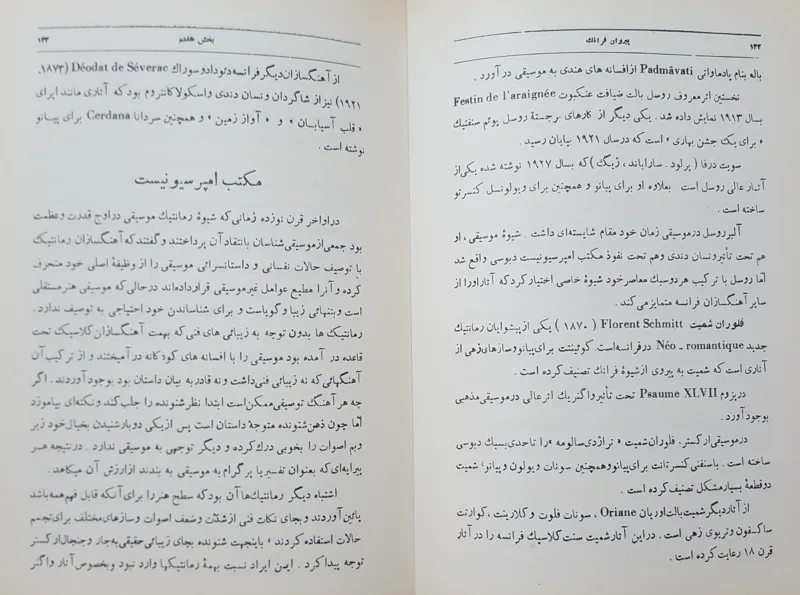 پیروان فرانك
۱۳۲
باله بنام پادماواتی Padmâvati از افسانه های هندی به موسیقی در آورد .
نخستین اثر معروف روسل بالت ضیافت عنکبوت Festin de l'araignée
بسال ۱۹۱۳ نمایش داده شد . یکی دیگر از کارهای برجستهٔ روسل پوئم سنفنیك
« برای یك جشن بهاری » است که در سال ۱۹۲۱ بپایان رسید .
سویت در فا ( پرلود . ساراباند ، ژیگ ) که بسال ۱۹۲۷ نوشته شده یکی از
آثار عالی روسل است بعلاوه او برای پیانو و همچنین برای ویولونسل کنسرتو
ساخته است .
آلبر روسل در موسیقی زمان خود مقام شایسته‌ای داشت . شیوهٔ موسیقی ، او
هم تحت تأثیر ونسان دندی وهم تحت نفوذ مکتب امپرسیونیست دبوسی واقع شد
امّا روسل با ترکیب هر دو سبك معاصر خود شیوهٔ خاصی اختیار کرد که آثار او را از
سایر آهنگسازان فرانسه متمایز می کند .
فلوران شمیت Florent Schmitt ( ۱۸۷۰ ) یکی از پیشوایان رمانتیك
جدید Néo - romantique در فرانسه است. کوئینتت برای پیانو وسازهای زهی از
آثاری است که شمیت به پیروی از شیوهٔ فرانك تصنیف کرده است .
در پزوم Psaume XLVII تحت تأثیر واگنر یك اثر عالی در موسیقی مذهبی
بوجود آورد .
در موسیقی ارکستر، فلوران شمیت « تراژدی سالومه » را تا حدی بسبك دبوسی
ساخته است . باسنفنی کنسرتانت برای پیانو و همچنین سونات ویولون و پیانو، شمیت
دو قطعهٔ بسیار مشکل تصنیف کرده است .
از آثار دیگر شمیت بالت اوریان Oriane ، سونات فلوت و کلارینت ، کوارتت
ساکسفون و تریوی زهی است . در این آثار شمیت سنت کلاسیك فرانسه را در آثار
قرن ۱۸ رعایت کرده است .
بخش هفتم
۱۳۳
از آهنگسازان دیگر فرانسه دئودا دو سوراك Déodat de Séverac (۱۸۷۳.
۱۹۲۱) نیز از شاگردان ونسان دندی واسکولا کانتروم بود که آثاری مانند اپرای
« قلب آسیابان » و « آواز زمین » و همچنین سردانا Cerdana برای پیانو
نوشته است .
مکتب امپرسیونیست
در اواخر قرن نوزده زمانی که شیوهٔ رمانتیك موسیقی در اوج قدرت و عظمت
بود جمعی از موسیقی شناسان بانتقاد آن پرداختند و گفتند که آهنگسازان رمانتیك
با توصیف حالات نفسانی و داستانسرائی موسیقی را از وظیفهٔ اصلی خود منحرف
کرده و آنرا مطیع عوامل غیر موسیقی قرار داده‌اند در حالی که موسیقی هنر مستقلی
است وبتنهائی زیبا و گویاست و برای شناساندن خود احتیاجی به توصیف ندارد .
رمانتیك ها بدون توجه به زیبائی های فنی که بهمت آهنگسازان کلاسیك تحت
قاعده در آمده بود موسیقی را با افسانه های کودکانه در آمیختند و از ترکیب آن
آهنگهائی که نه زیبائی فنی داشت و نه قادر به بیان داستان بود بوجود آوردند . اگر
چه هر آهنگ توصیفی ممکن است ابتدا نظر شنونده را جلب کند و نکته‌ای بیاموزد
امّا چون ذهن شنونده متوجهٔ داستان است پس از یکی دو بار شنیدن بخیال خود زیر
وبم اصوات را بخوبی درك کرده و دیگر توجهی به موسیقی ندارد . در نتیجه هر
پیرایه‌ای که بعنوان تفسیر یا پرگرام به موسیقی به بندند از ارزش آن میکاهد .
اشتباه دیگر رمانتیك‌ها آن بود که سطح هنر را برای آنکه قابل فهم همه باشد
پائین آوردند و بجای نکات فنی از شدّت و ضعف اصوات و سازهای مختلف برای تجسم
حالات استفاده کردند « باینجهت شنونده بجای زیبائی حقیقی به جار و جنجال ارکستر
توجه پیدا کرد . ایمن ایراد نسبت بهمهٔ رمانتیکها وارد نبود و بخصوص آثار واگنر